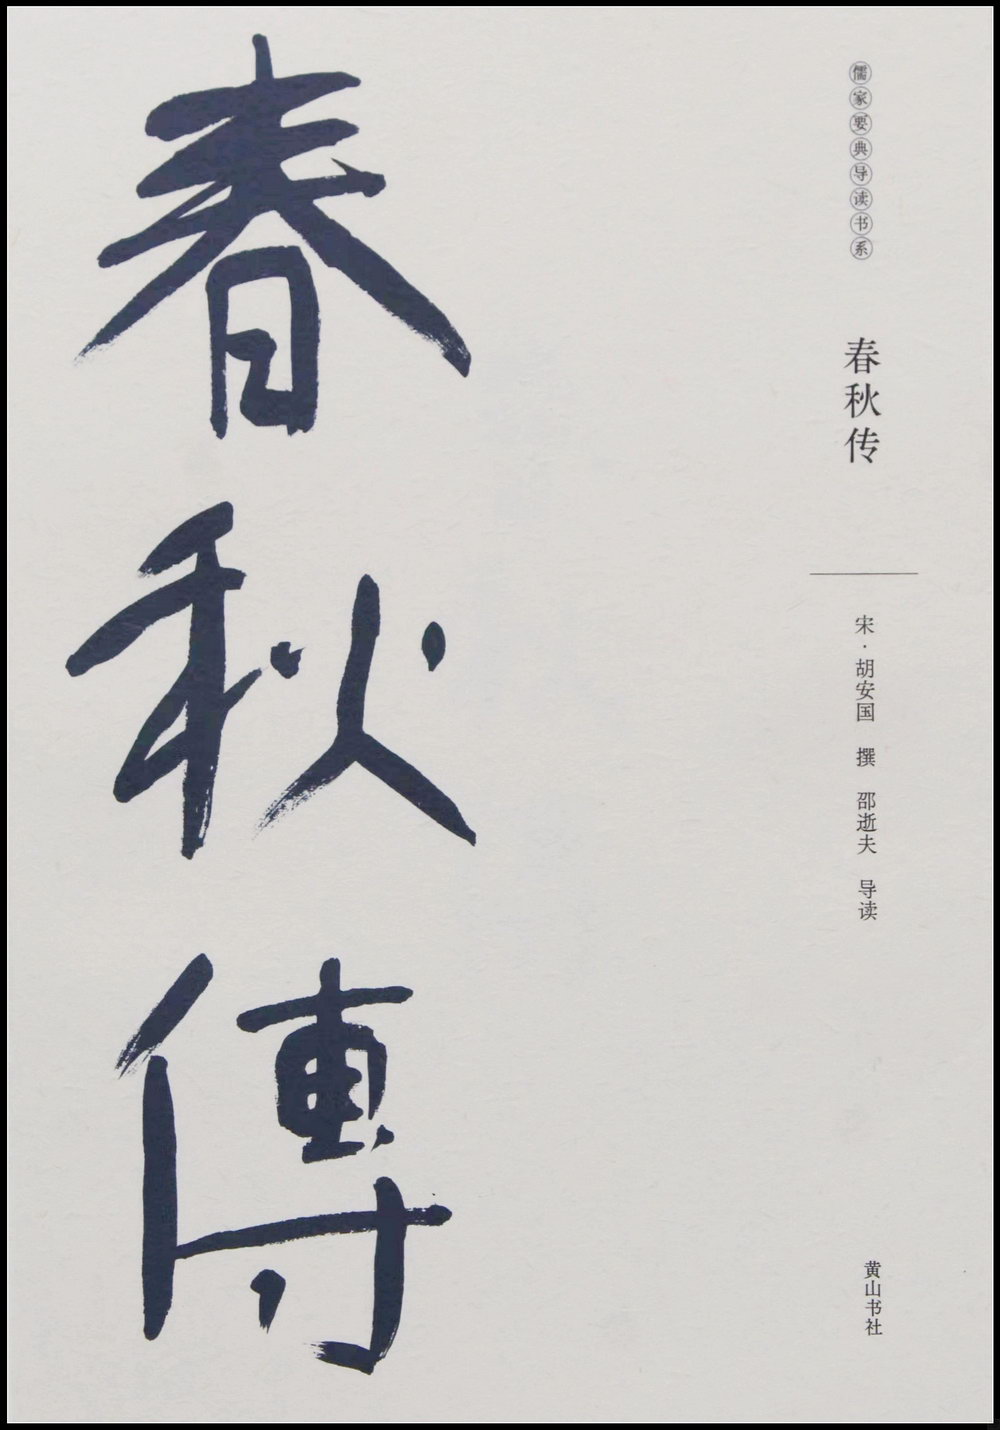 春秋傳
儒家要典导读书系
春秋传
宋·胡安国 撰 邵逝夫 导读
黄山书社